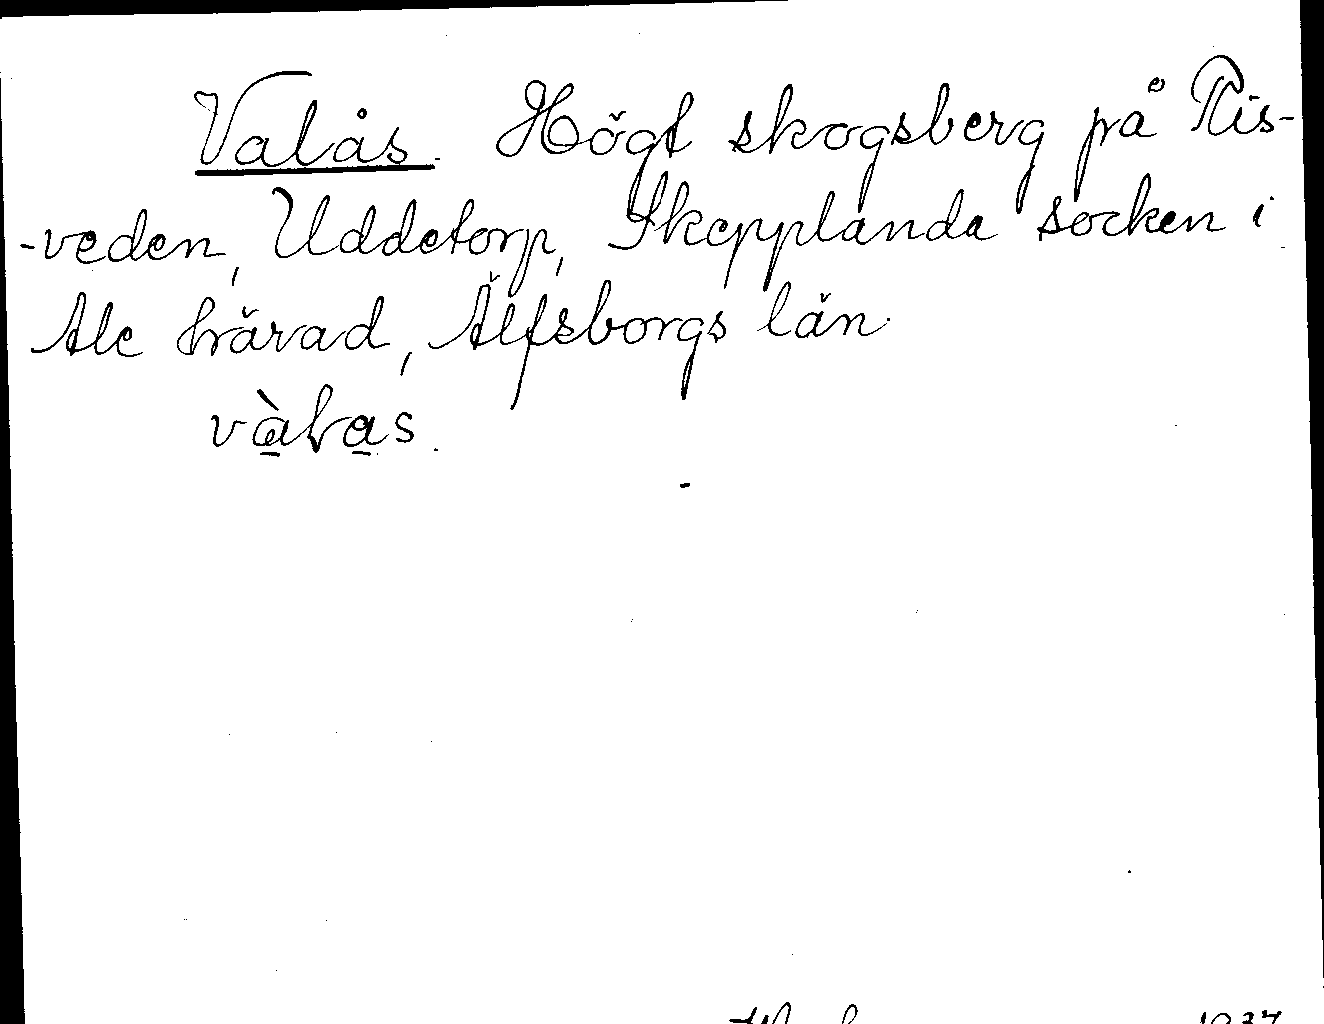 Valås. Högt skogsberg på Ris-
-veden, Uddetorp, Skepplanda socken i
Ale härad, Älfsborgs län.